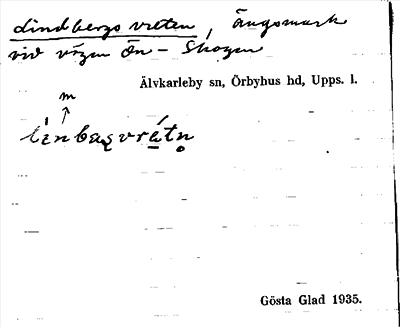 Lindbergs vreten, ängsmark
vid vägen Ön - Skogen
Älvkarleby sn, Örbyhus hd, Upps. l.
m
↑
línbaʂvrátn̥
Gösta Glad 1935.